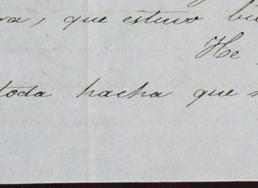 ra, que estuvo bu
He
toda hacha que